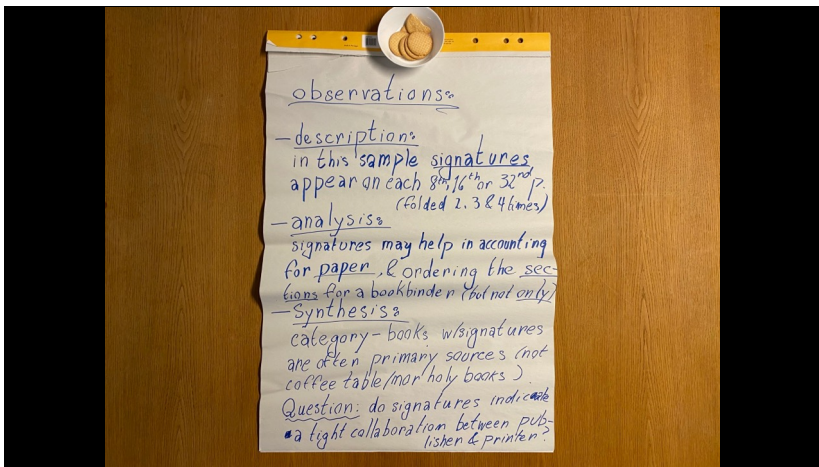 observations:
– description:
in this sample signatures
appear on each 8th, 16th or 32nd p.
(folded 2, 3 & 4 times)
– analysis:
signatures may help in accounting
for paper, & ordering the sec-
tions for a bookbinder (but not only)
– Synthesis:
category – books w/signatures
are often primary sources (not
coffee table/nor holy books).
Question: do signatures indicate
a tight collaboration between pub-
lisher & printer?